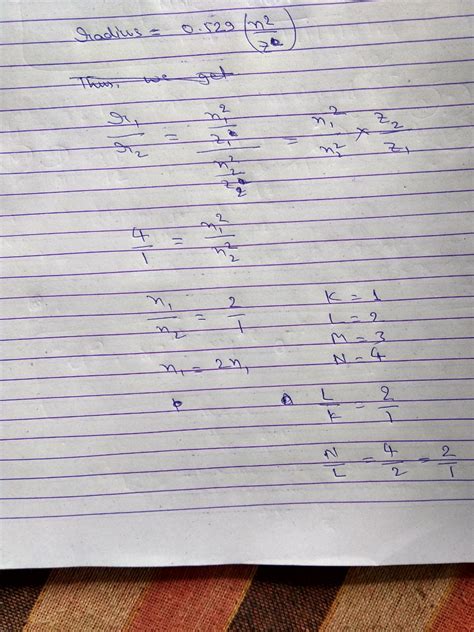 Radius = 0.529 (n²/z)
Thus, we get
r₁/r₂ = (n₁²/z₁)/(n₂²/z₂) = n₁²/n₂² × z₂/z₁
4/1 = n₁²/n₂²
n₁/n₂ = 2/1
K = 1
L = 2
M = 3
N = 4
n₁ = 2n₁
L/K = 2/1
N/L = 4/2 = 2/1